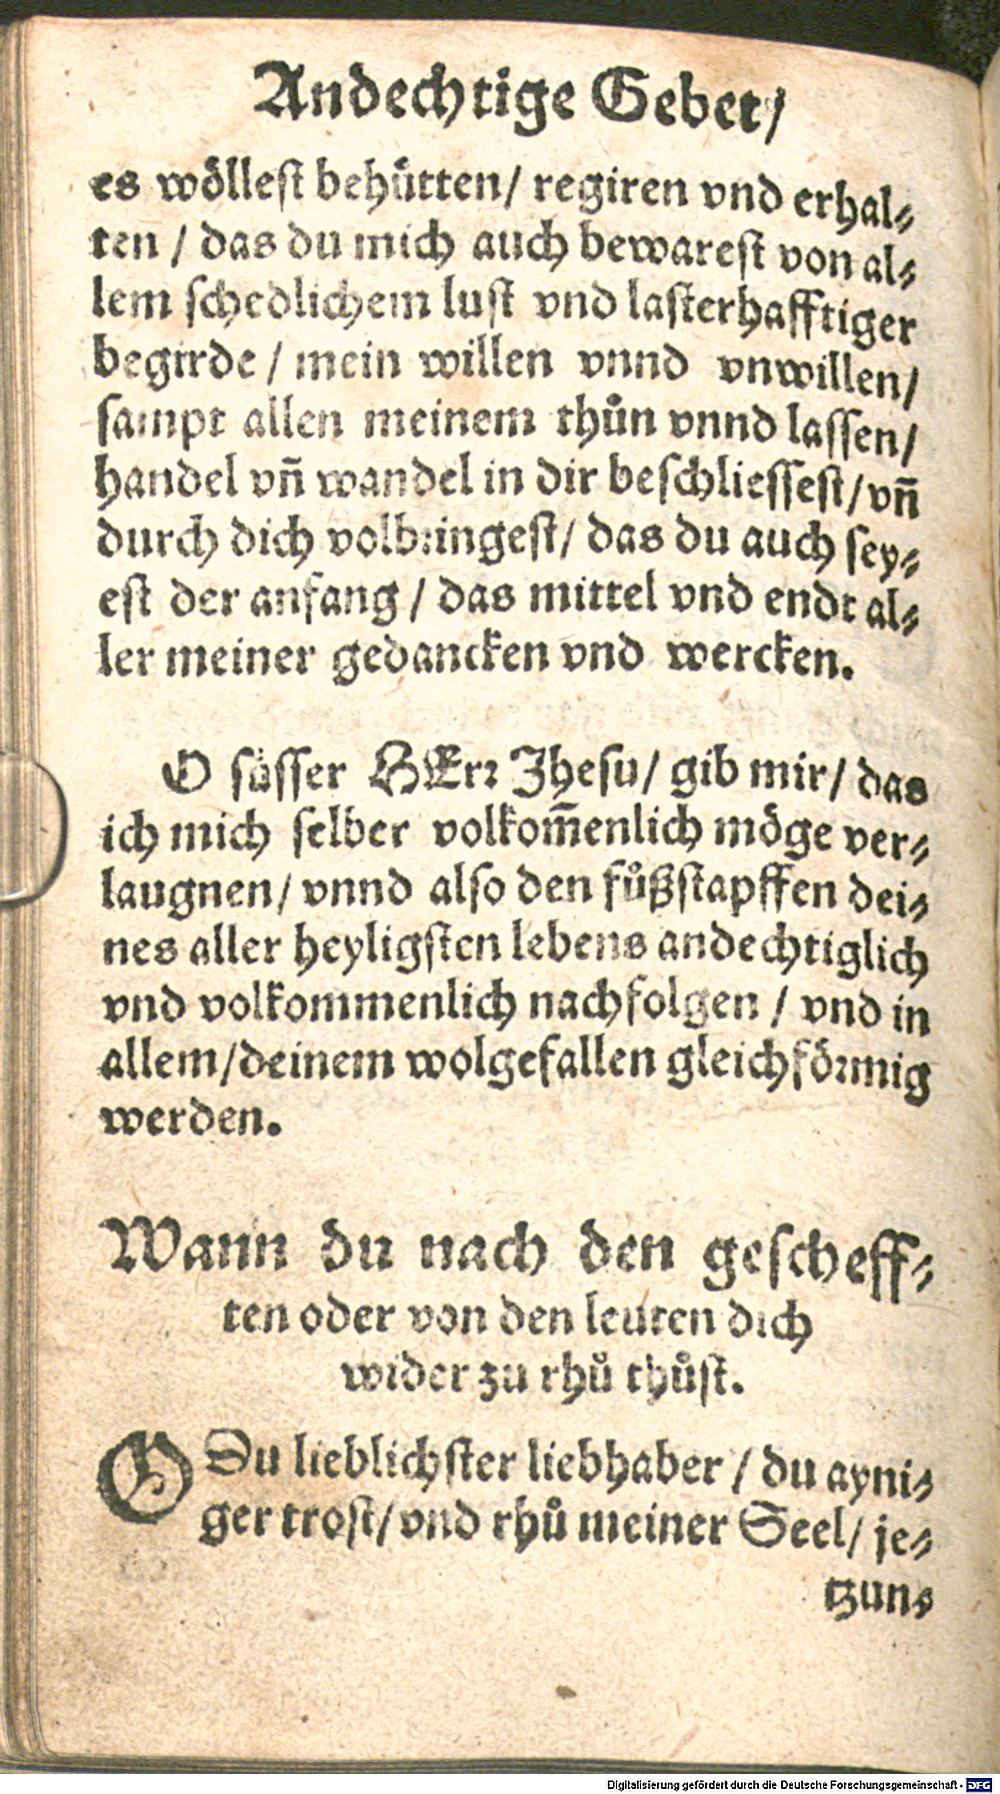 Andechtige Gebet/
es wöllest behuͤtten/ regiren vnd erhal⸗
ten / das du mich auch bewarest von al⸗
lem schedlichem lust vnd lasterhafftiger
begirde / mein willen vnnd vnwillen/
sampt allen meinem thuͦn vnnd lassen/
handel vñ wandel in dir beschliessest/vñ
durch dich volbꝛingest/ das du auch sey⸗
est der anfang / das mittel vnd endt al⸗
ler meiner gedancken vnd wercken.
O suͤsser HErꝛ Jhesu/ gib mir/ das
ich mich selber volkom̃enlich möge ver⸗
laugnen/ vnnd also den fuͦßstapffen dei⸗
nes aller heyligsten lebens andechtiglich
vnd volkommenlich nachfolgen / vnd in
allem/deinem wolgefallen gleichföꝛmig
werden.
Wann du nach den gescheff⸗
ten oder von den leuten dich
wider zu rhuͦ thuͦst.
O Du lieblichster liebhaber / du ayni⸗
ger trost/vnd rhuͦ meiner Seel/ je⸗
tzun⸗
Digitalisierung gefördert durch die Deutsche Forschungsgemeinschaft - DFG